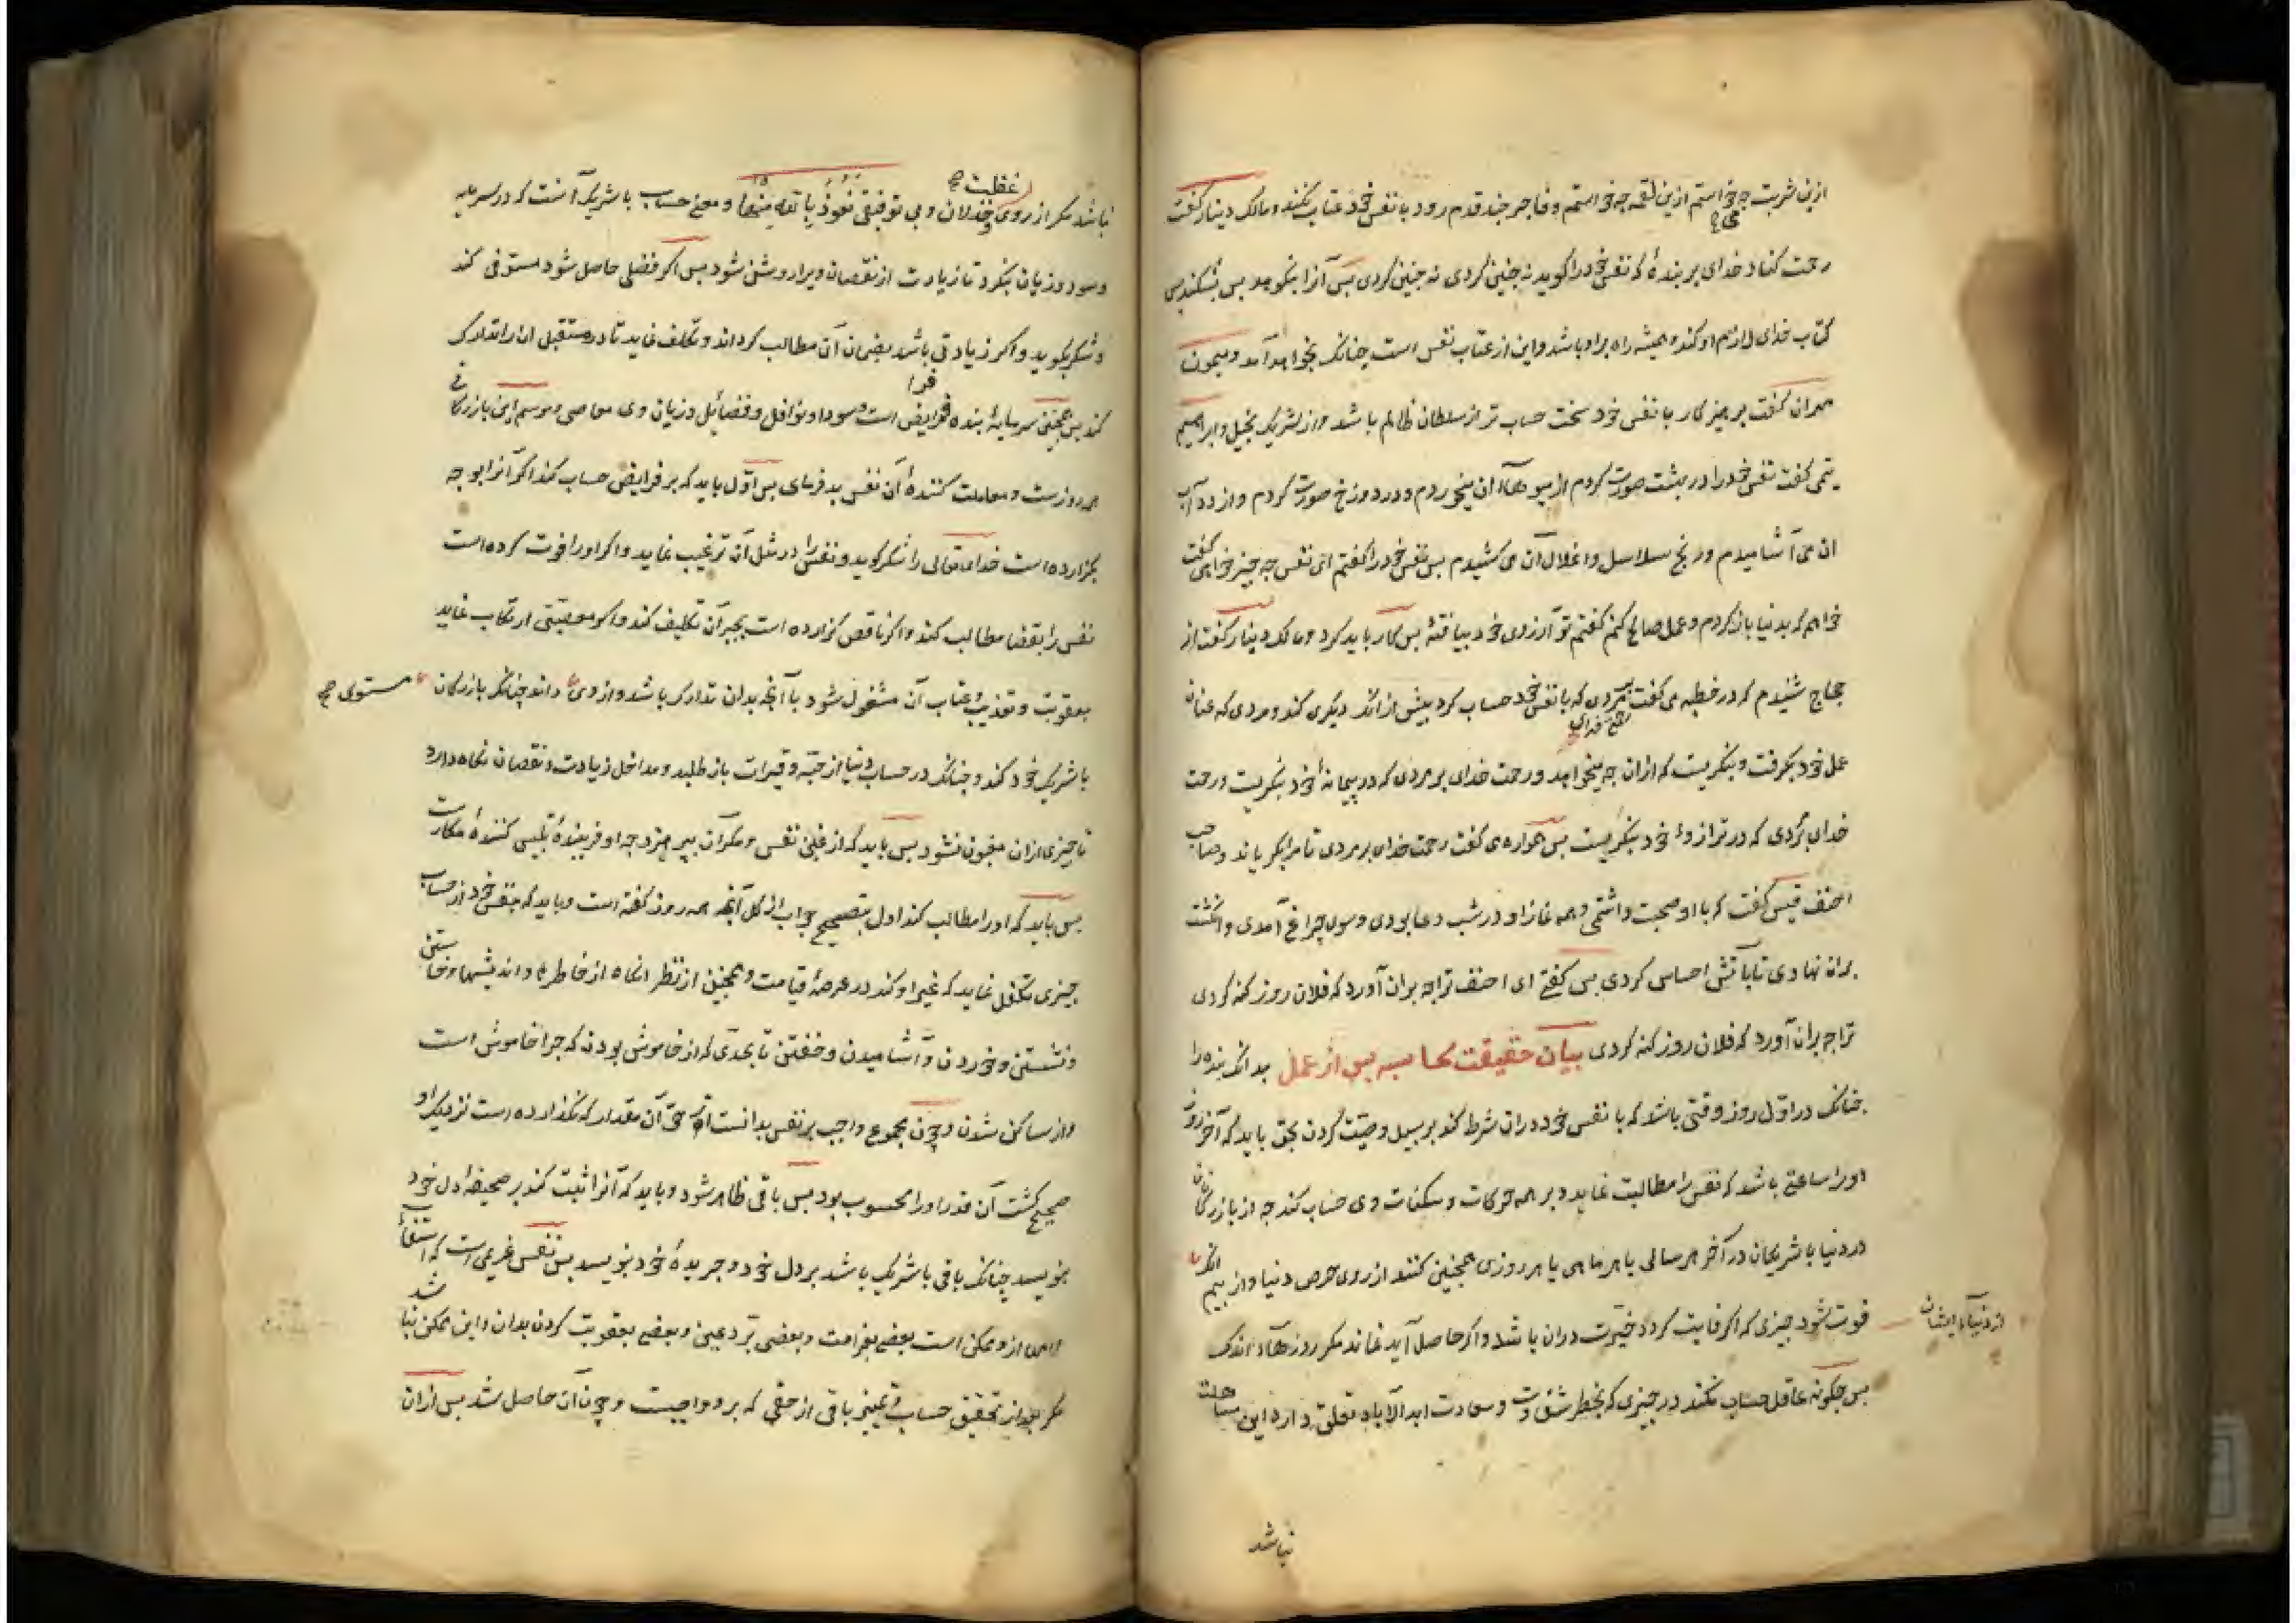 ازین شربت چه خواستم ازین لقمه چه خواستم و فاجر چند قدم رود با نفس خود عتاب نکند و مالک دینار گفت
رحمت کناد خدای بر بندهٔ که نفس خود را گوید نه چنین کردی نه چنین کردی پس آنرا بنکوهد پس بشکند پس
کتاب خدای لازم او کند و همیشه راه بر او باشد و این از عتاب نفس است چنانک بخواهد آمد و میمون
مهران گفت پرهیزکار با نفس خود سخت حساب تر از سلطان ظالم باشد و از شریک بخیل و ابراهیم
تیمی گفت نفس خود را در بهشت صورت کردم از میوهاء آن میخوردم و در دوزخ صورت کردم و از زه آب
ان می آشامیدم و رنج سلاسل و اغلال آن می کشیدم پس نفس خود را گفتم ای نفس چه چیز خواهی گفت
خواهم که بدنیا بازگردم و عمل صالح کنم گفتم تو آرزوی خود بیافتهٔ پس کار باید کرد و مالک دینار گفت از
حجاج شنیدم که در خطبه می گفت مردی که با نفس خود حساب کرد پیش از انک دیگری کند و مردی که عنان
عمل خود بگرفت و بنگریست که ازان چه میخواهد و رحمت خدای بر مردی که در پیمانهٔ خود بنگریست و رحمت
خدای بر مردی که در ترازوء خود بنگریست پس همواره می گفت رحمت خدای بر مردی تا مرا بگریاند و صاحب
احنف قیس گفت که با او صحبت داشتمی و همه نماز او در شب دعا بودی و سوی چراغ آمدی و انگشت
بران نهادی تا باتش احساس کردی پس گفتی ای احنف ترا چه بران آورد که فلان روز گنه کردی
ترا چه بران آورد که فلان روز گنه کردی بیان حقیقت محاسبه پس از عمل بدانک بنده را
چنانک در اوّل روز وقتی باشد که با نفس خود دران شرط کند بر سبیل وصیّت کردن بحق باید که آخر روز
او را ساعتی باشد که نفس را مطالبت نماید و بر همه حرکات و سکنات وی حساب کند چه از بازرگانان
در دنیا با شریکان در آخر هر سالی یا هر ماهی یا هر روزی همچنین کنند از روی حرص دنیا و از بیم انک
فوت شود چیزی که اگر فایت گردد خیرت دران باشد و اگر حاصل آید نماند مگر روزهاء اندک
از دنیاء ایشان
پس چگونه عاقل حساب نکند در چیزی که بخطر شقاوت و سعادت ابد الآباد تعلق دارد این مساهلت
نباشد
نباشد مگر از روی غفلت و خذلان و بی توفیقی نعوذ بالله منها و معنی حساب با شریک آنست که در سرمایه
و سود و زیان بنگرد تا زیادت از نقصان ویرا روشن شود پس اگر فضلی حاصل شود مستوفی کند
و شکر بگوید و اگر زیادتی باشد بضمان آن مطالب گرداند و تکلف نماید تا در مستقبل ان را تدارک
کند پس همچنین سرمایهٔ بنده فرایض است و سود او نوافل و فضائل و زیان وی معاصی و موسم این بازرگانی
همه روزست و معاملت کنندهٔ آن نفس بدفرمای پس اوّل باید که بر فرایض حساب کند اگر آنرا بوجه
بگزارده است خدای تعالی را شکر گوید و نفس را در مثل آن ترغیب نماید و اگر اورا فوت کرده است
نفس را بقضا مطالب کند و اگر ناقص گزارده است بجبر آن تکلیف کند و اگر معصیتی ارتکاب نماید
بعقوبت و تعذیب و عتاب آن مشغول شود با آنچه بدان تدارک باشد و از وی داند چنانک بازرگان
مستوی صح
با شریک خود کند و چنانک در حساب دنیا از حبّه و قیراط باز طلبد و مداخل زیادت و نقصان نگاه دارد
تا چیزی ازان مغبون نشود پس باید که از غبن نفس و مکر آن بپرهیزد چه او فریبندهٔ تلبیس کنندهٔ مکارست
پس باید که اورا مطالب کند اول بتصحیح جواب از کل آنچه همه روز گفته است و باید که بنفس خود از حساب
چیزی تکفل نماید که غیر او کند در عرصهٔ قیامت و همچنین از نظر انگاه از خاطرها و اندیشها و خاستن
و نشستن و خوردن و آشامیدن و خفتن تا بحدی که از خاموش بودن که چرا خاموش است
و از ساکن شدن و چون مجموع واجب بر نفس بدانست آن حق آن مقدار که بگذارده است نزدیک او
صحیح گشت آن قدر اورا محسوب بود پس باقی ظاهر شود و باید که آنرا ثبت کند بر صحیفهٔ دل خود
بنویسد چنانک باقی با شریک باشد بر دل خود و جریدهٔ خود بنویسد پس نفس غریمی است که استیفاء
وام ازو ممکن است بعضی بغرامت و بعضی بردّ عین و بعضی بعقوبت کردن بدان و این ممکن نباشد
مگر بعد از تحقیق حساب و تمییز باقی از حقی که برو واجبست و چون آن حاصل شد پس ازان